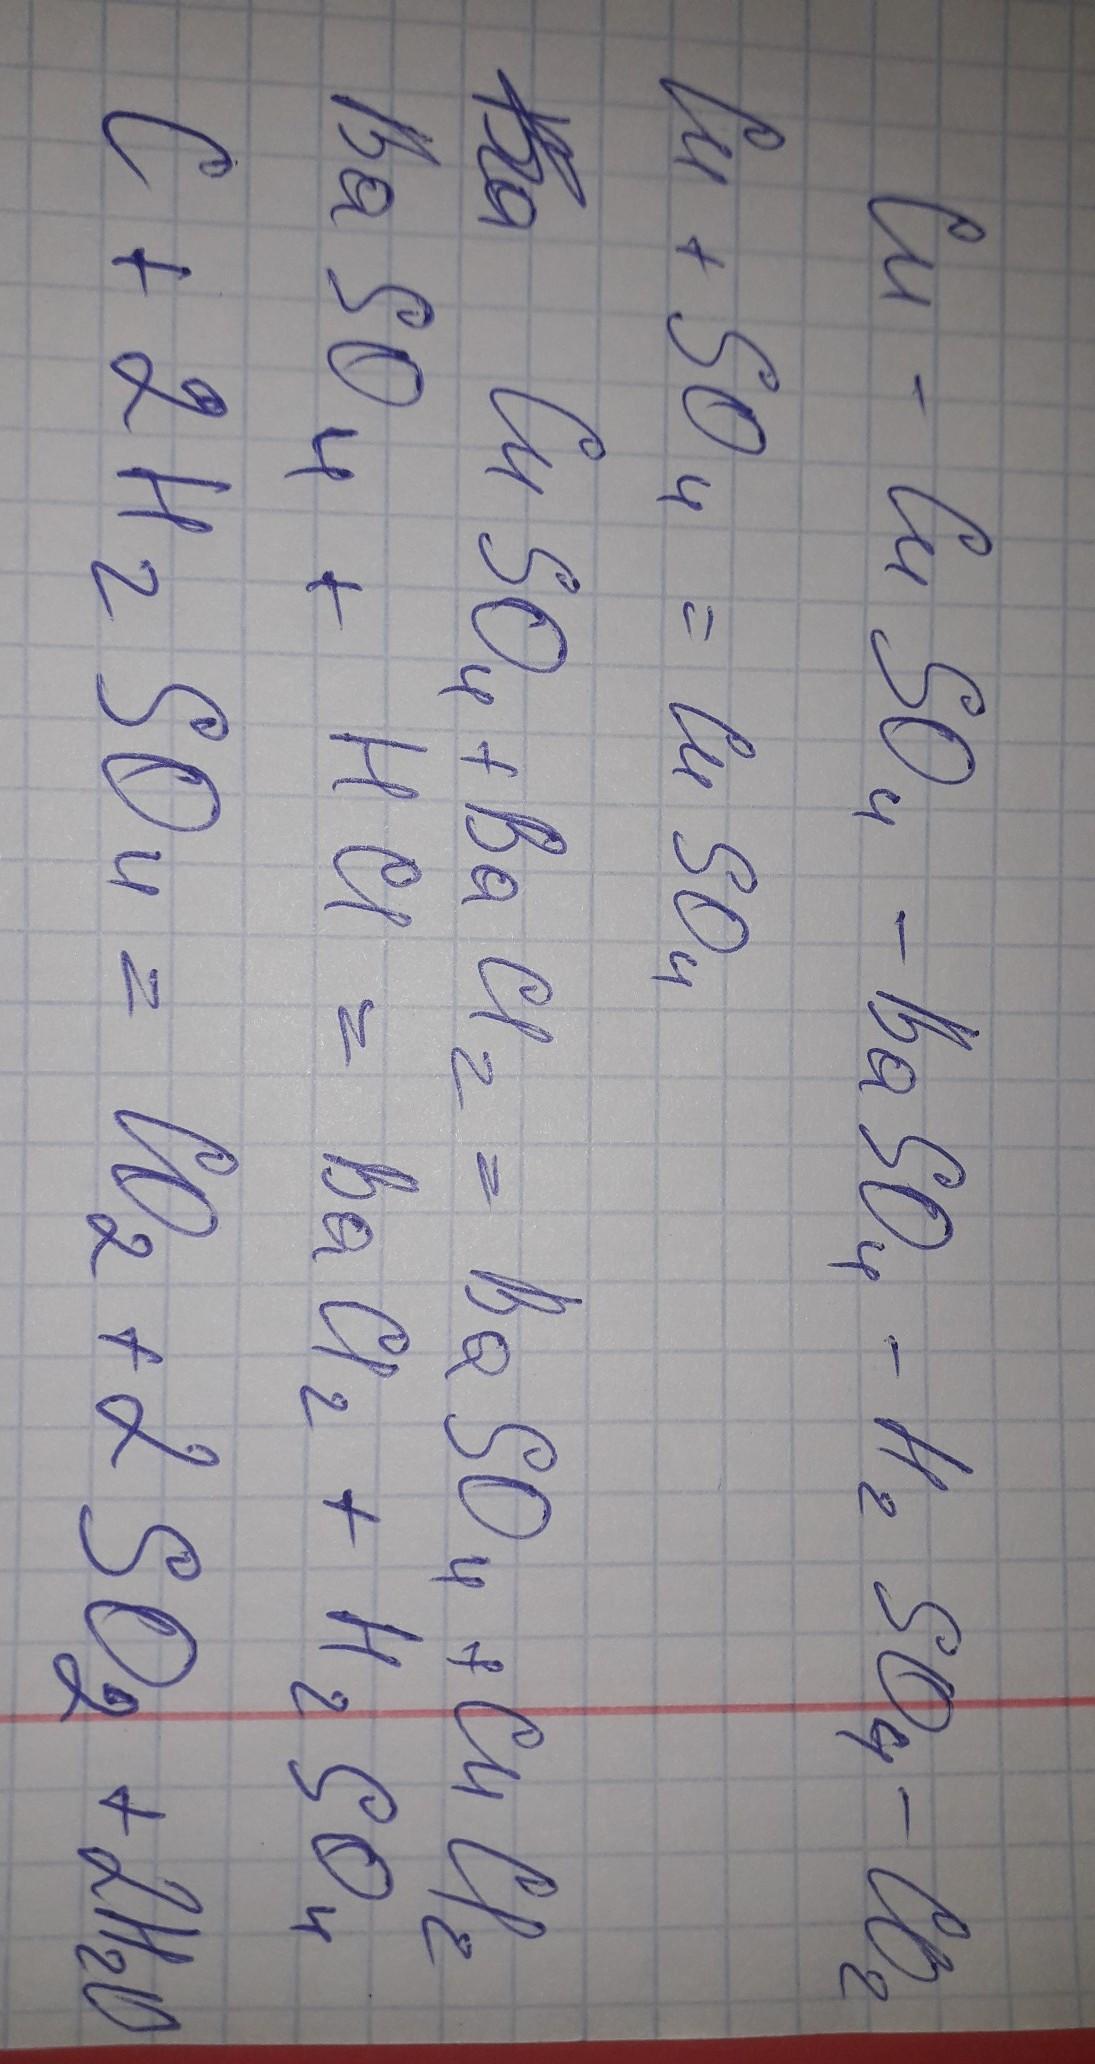 Cu - CuSO4 - BaSO4 - H2SO4 - CO2
Cu + SO4 = CuSO4
CuSO4 + BaCl2 = BaSO4 + CuCl2
BaSO4 + HCl = BaCl2 + H2SO4
C + 2H2SO4 = CO2 + 2SO2 + 2H2O